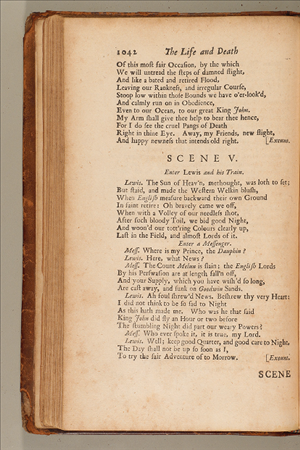 1042 The Life and Death
Of this most fair Occasion, by the which
We will untread the steps of damned flight,
And like a bated and retired Flood,
Leaving our Rankness, and irregular Course,
Stoop low within those Bounds we have o'er-look'd,
And calmly run on in Obedience,
Even to our Ocean, to our great King John.
My Arm shall give thee help to bear thee hence,
For I do see the cruel Pangs of Death
Right in thine Eye. Away, my Friends, new flight,
And happy newness that intends old right. [Exeunt.
SCENE V.
Enter Lewis and his Train.
Lewis. The Sun of Heav'n, methought, was loth to set:
But staid, and made the Western Welkin blush,
When English measure backward their own Ground
In faint retire: Oh bravely came we off,
When with a Volley of our needless shot,
After such bloody Toil, we bid good Night,
And woon'd our tott'ring Colours clearly up,
Last in the Field, and almost Lords of it.
Enter a Messenger.
Mess. Where is my Prince, the Dauphin?
Lewis. Here, what News?
Mess. The Count Melun is slain; the English Lords
By his Perswasion are at length fall'n off,
And your Supply, which you have wish'd so long,
Are cast away, and sunk on Goodwin Sands.
Lewis. Ah foul shrew'd News. Beshrew thy very Heart:
I did not think to be so sad to Night
As this hath made me. Who was he that said
King John did fly an Hour or two before
The stumbling Night did part our weary Powers?
Mess. Who ever spoke it, it is true, my Lord.
Lewis. Well; keep good Quarter, and good care to Night.
The Day shall not be up so soon as I,
To try the fair Adventure of to Morrow. [Exeunt.
SCENE